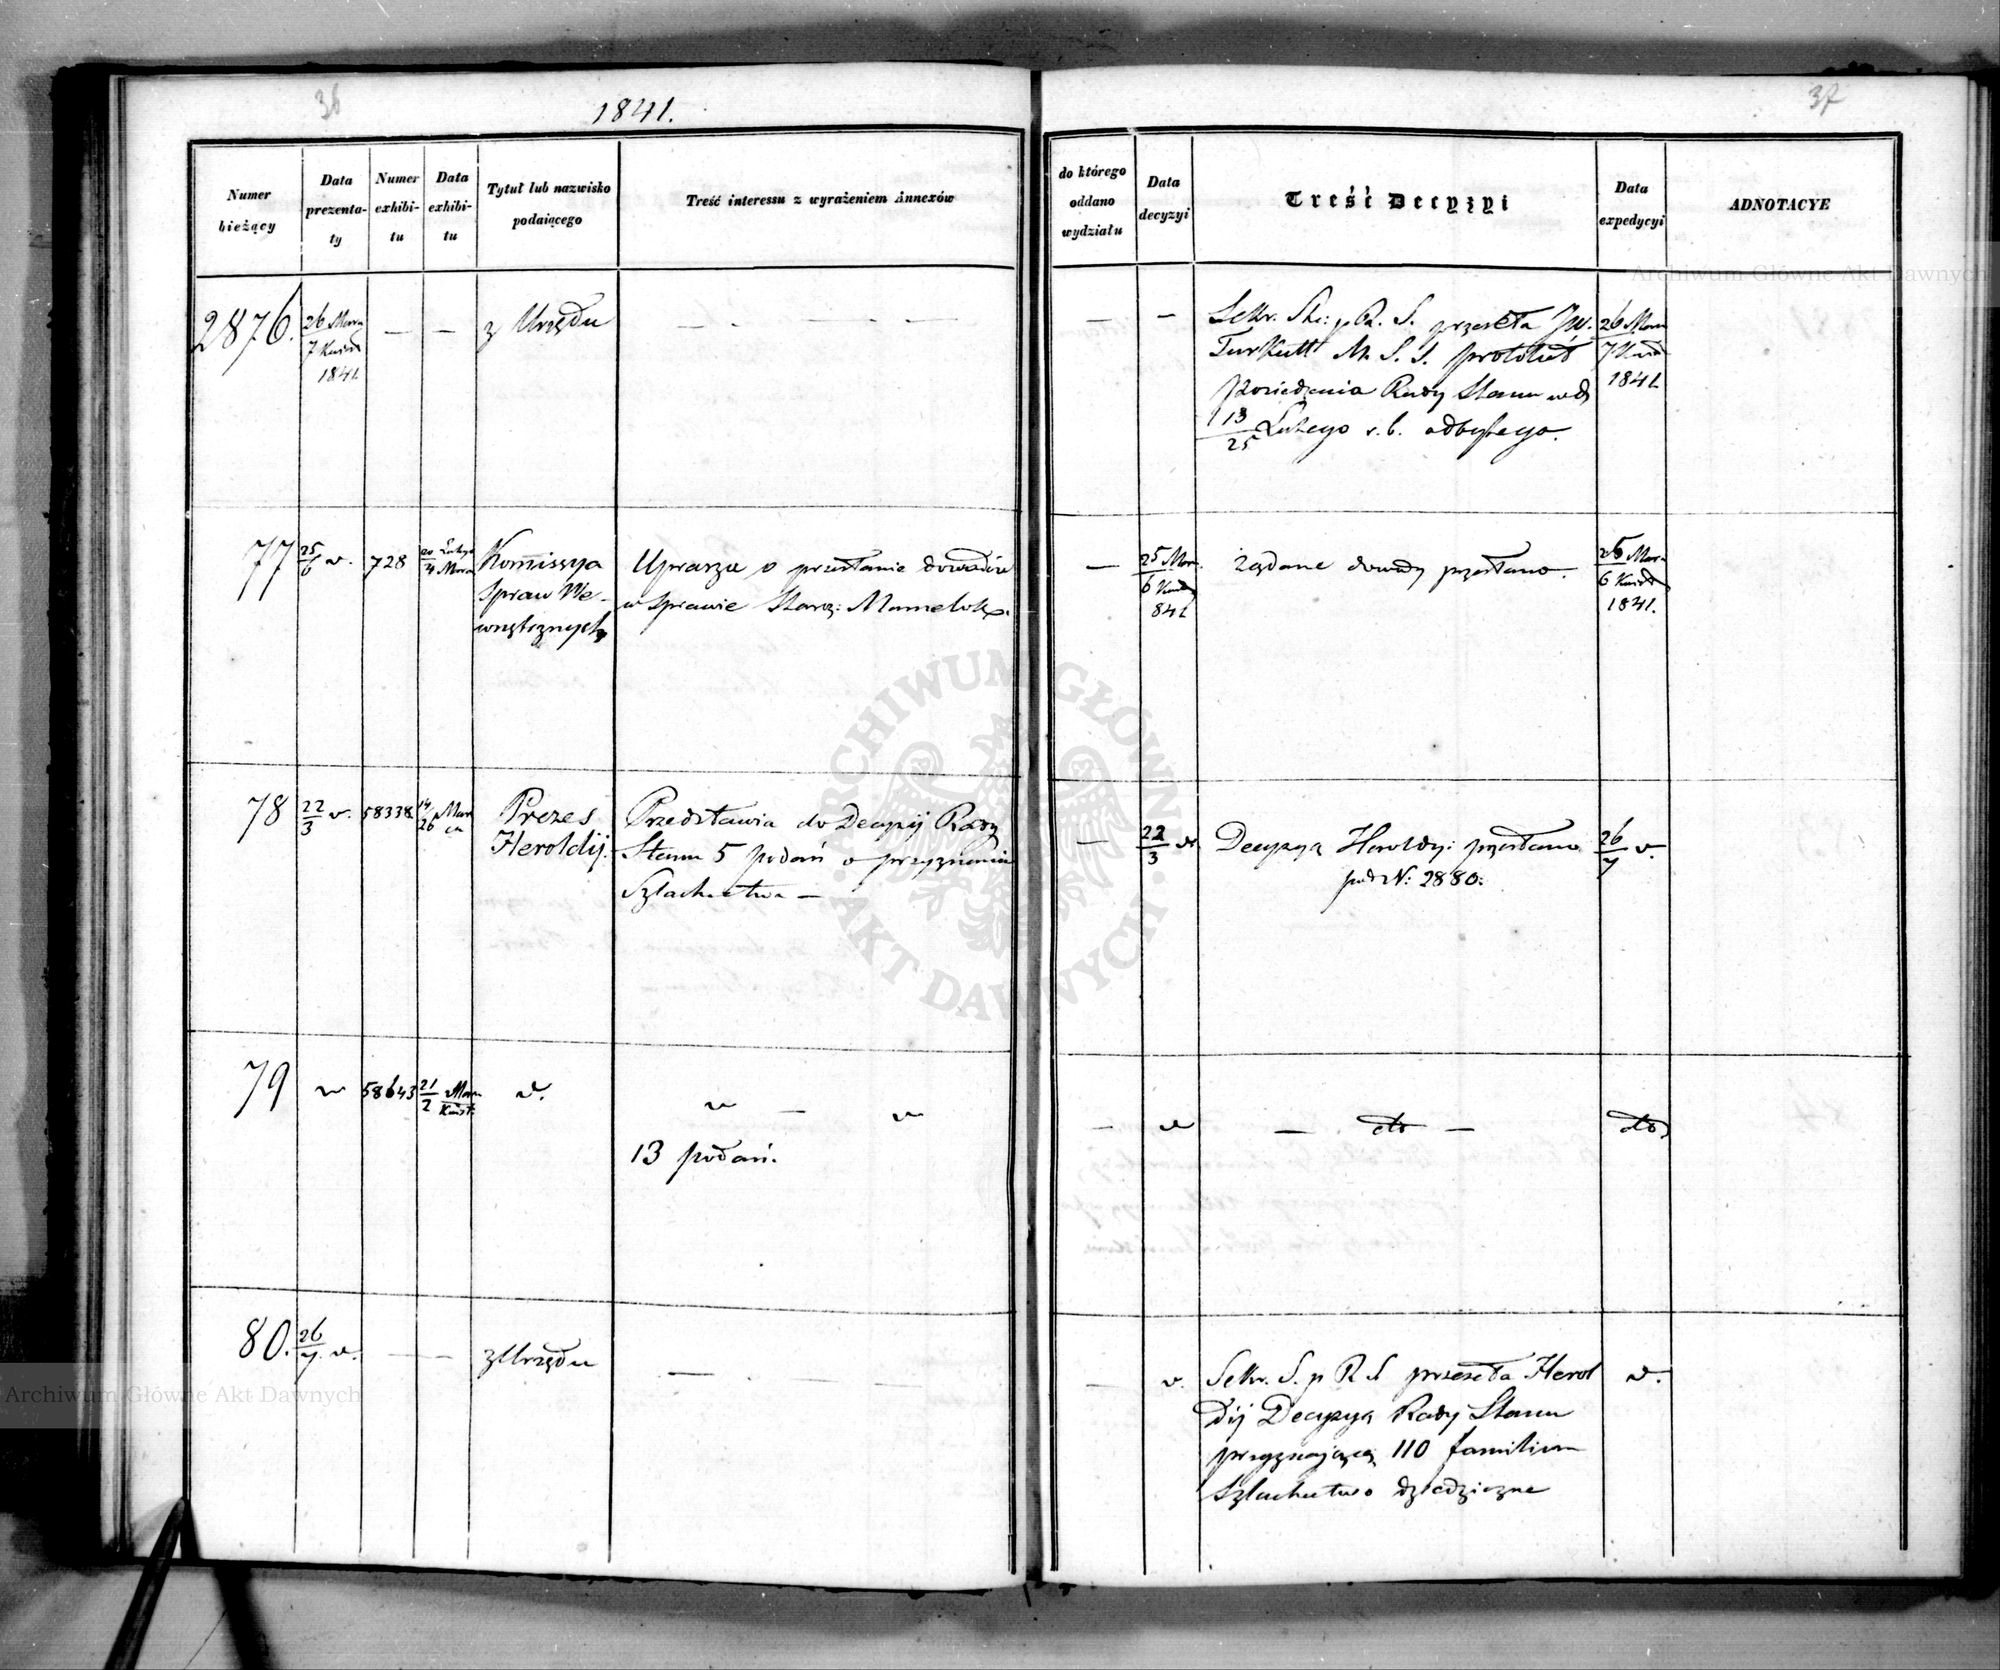 36
1841.
37
Numer bieżący
Data prezenta-ty
Numer exhibi-tu
Data exhibi-tu
Tytuł lub nazwisko podaiącego
Treść interessu z wyrażeniem Annexów
do którego oddano wydziału
Data decyzyi
Treść Decyzyi
Data expedycyi
ADNOTACYE
2876.
26 Mar
7 Kwiet
1841.
— —
z Urzędu
— . — — —
— —
Sekr. St: p R. S. przeseła JW.
Turkułł M. S. S. protokuł
Posiedzenia Rady Stanu w d
13/25 Lutego r. b. odbytego.
26 Mar
7 Kwiet
1841.
77
25/6 v.
728
20 Lutego
4 Marca
Kommissya
Spraw We-
wnętrznych
Uprasza o przesłanie dowodów
w Sprawie Staroz: Mamelok.
—
25 Mar.
6 Kwiet
841
Żądane dowody przesłano.
25 Mar
6 Kwiet
1841.
78
22/3 v.
58338
14/26 Mar
ca
Prezes
Heroldij.
Przedstawia do Decyzij Rady
Stanu 5 podań o przyznanie
Szlachectwa —
—
22/3 v
Decyzyą Heroldyi przesłano
pod N: 2880.
26/7 v.
79
v
58643
21 Mar
2 Kwiet.
v.
v — v
13 podań.
— v
— dto —
dto
80.
26/7 v.
— —
z Urzędu
— . — —
— v.
Sekr. S. p R S przeseła Herol
dij Decyzyą Rady Stanu
przyznającą 110 familiom
Szlachectwo dziedziczne
v.
ARCHIWUM GŁÓWNE · AKT DAWNYCH ·
Archiwum Główne Akt Dawnych
Archiwum Główne Akt Dawnych